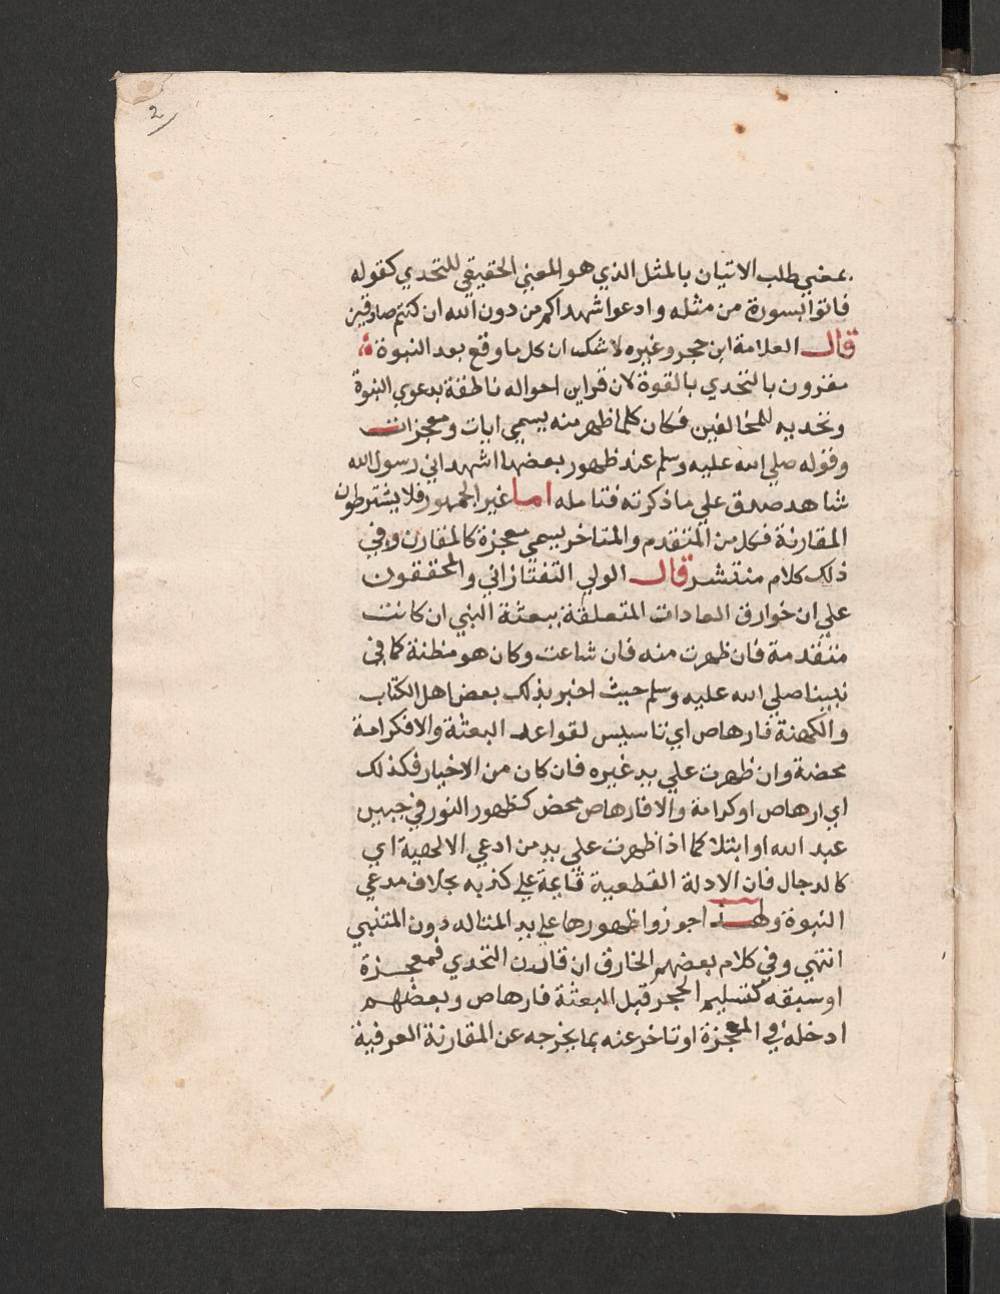 2
بمعني طلب الاتيان بالمثل الذي هو المعني الحقيقي للتحدي كقوله
فاتوا بسورة من مثله وادعوا شهداكم من دون الله ان كنتم صادقين
قال العلامة ابن حجر وغيره لا شك ان كل ما وقع بعد النبوة
مقرون بالتحدي بالقوة لان قراين احواله ناطقة بدعوي النبوة
وتحديه للمخالفين فكان كلما ظهر منه يسمي ايات ومعجزات
وقوله صلي الله عليه وسلم عند ظهور بعضها اشهد اني رسول الله
شاهد صدق علي ما ذكرته فتامله اما غير الجمهور فلا يشترطون
المقارنة فكل من المتقدم والمتاخر يسمي معجزة كالمقارن وفي
ذلك كلام منتشر قال الولي التفتازاني والمحققون
علي ان خوارق العادات المتعلقة ببعثة النبي ان كانت
متقدمة فان ظهرت منه فان شاعت وكان هو مظنة كما في
نبينا صلي الله عليه وسلم حيث اخبر بذلك بعض اهل الكتاب
والكهنة فارهاص اي تاسيس لقواعد البعثة والا فكرامة
محضة وان ظهرت علي يد غيره فان كان من الاخيار فكذلك
اي ارهاص او كرامة والا فارهاص محض كظهور النور في جبين
عبد الله او ابتلا كما اذا ظهرت علي يد من ادعي الالهية اي
كالدجال فان الادلة القطعية قايمة علي كذبه بخلاف مدعي
النبوة ولهذا جوزوا ظهورها علي يد المتاله دون المتنبي
انتهي وفي كلام بعضهم الخارق ان قارن التحدي فمعجزة
او سبقه كتسليم الحجر قبل البعثة فارهاص وبعضهم
ادخله في المعجزة او تاخر عنه بما يخرجه عن المقارنة العرفية